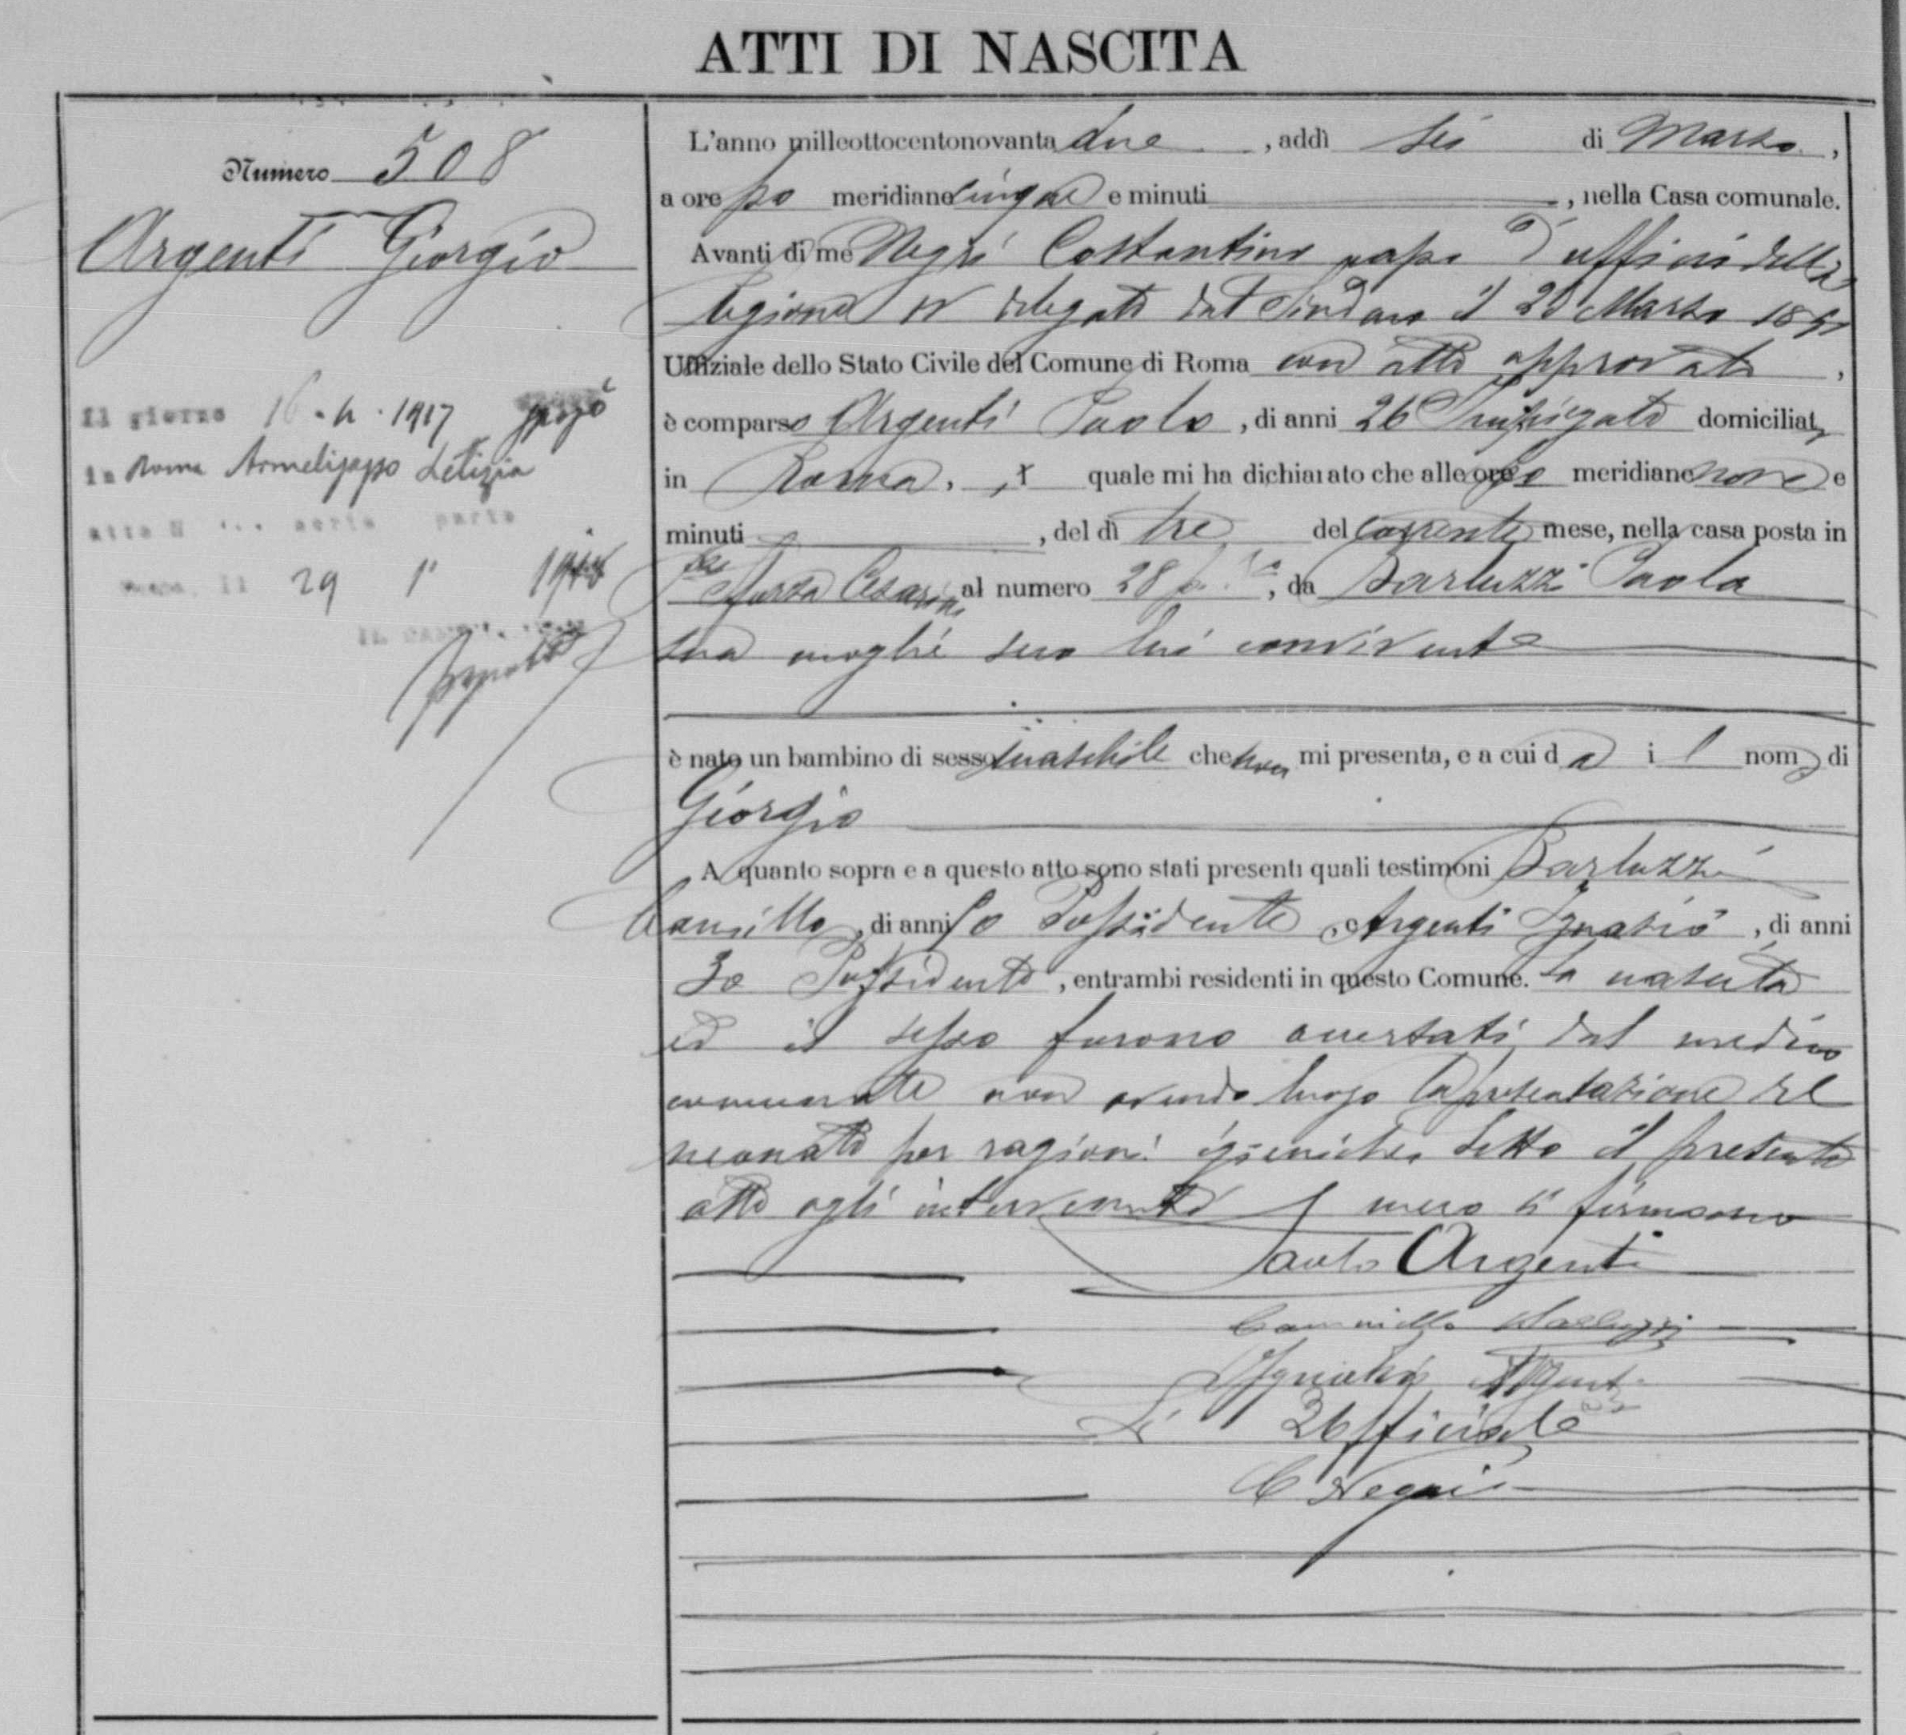 ATTI DI NASCITA
Numero 508
Argenti Giorgio
Il giorno 16 - 4 - 1917 sposò
in Roma Armelisasso Letizia
atto N serie parte
Roma, li 29 1°
L'anno milleottocentonovanta due , addì sei di Marzo ,
a ore po meridiane cinque e minuti , nella Casa comunale.
Avanti di me Negri Costantino capo d'ufficio della
legione delegato dal Sindaco il 20 Marzo 1891
Uffiziale dello Stato Civile del Comune di Roma con atto approvato ,
è comparso Argenti Paolo , di anni 26 Impiegato domiciliato
in Roma , il quale mi ha dichiarato che alle ore po meridiane nove e
minuti , del dì tre del corrente mese, nella casa posta in
Sforza Cesarini al numero 28 , da Barluzzi Paola
sua moglie seco lui convivente
è nato un bambino di sesso maschile che non mi presenta, e a cui dà il nome di
Giorgio
A quanto sopra e a questo atto sono stati presenti quali testimoni Barluzzi
Camillo , di anni 50 Possidente , e Argenti Ignazio , di anni
30 Possidente , entrambi residenti in questo Comune. La nascita
ed il sesso furono accertati dal medico
comunale non avendo luogo la presentazione del
neonato per ragioni igieniche. Letto il presente
atto agli intervenuti meco si firmano
Paolo Argenti
Cammillo Barluzzi
Ignazio Argenti
L'Ufficiale
C Negri